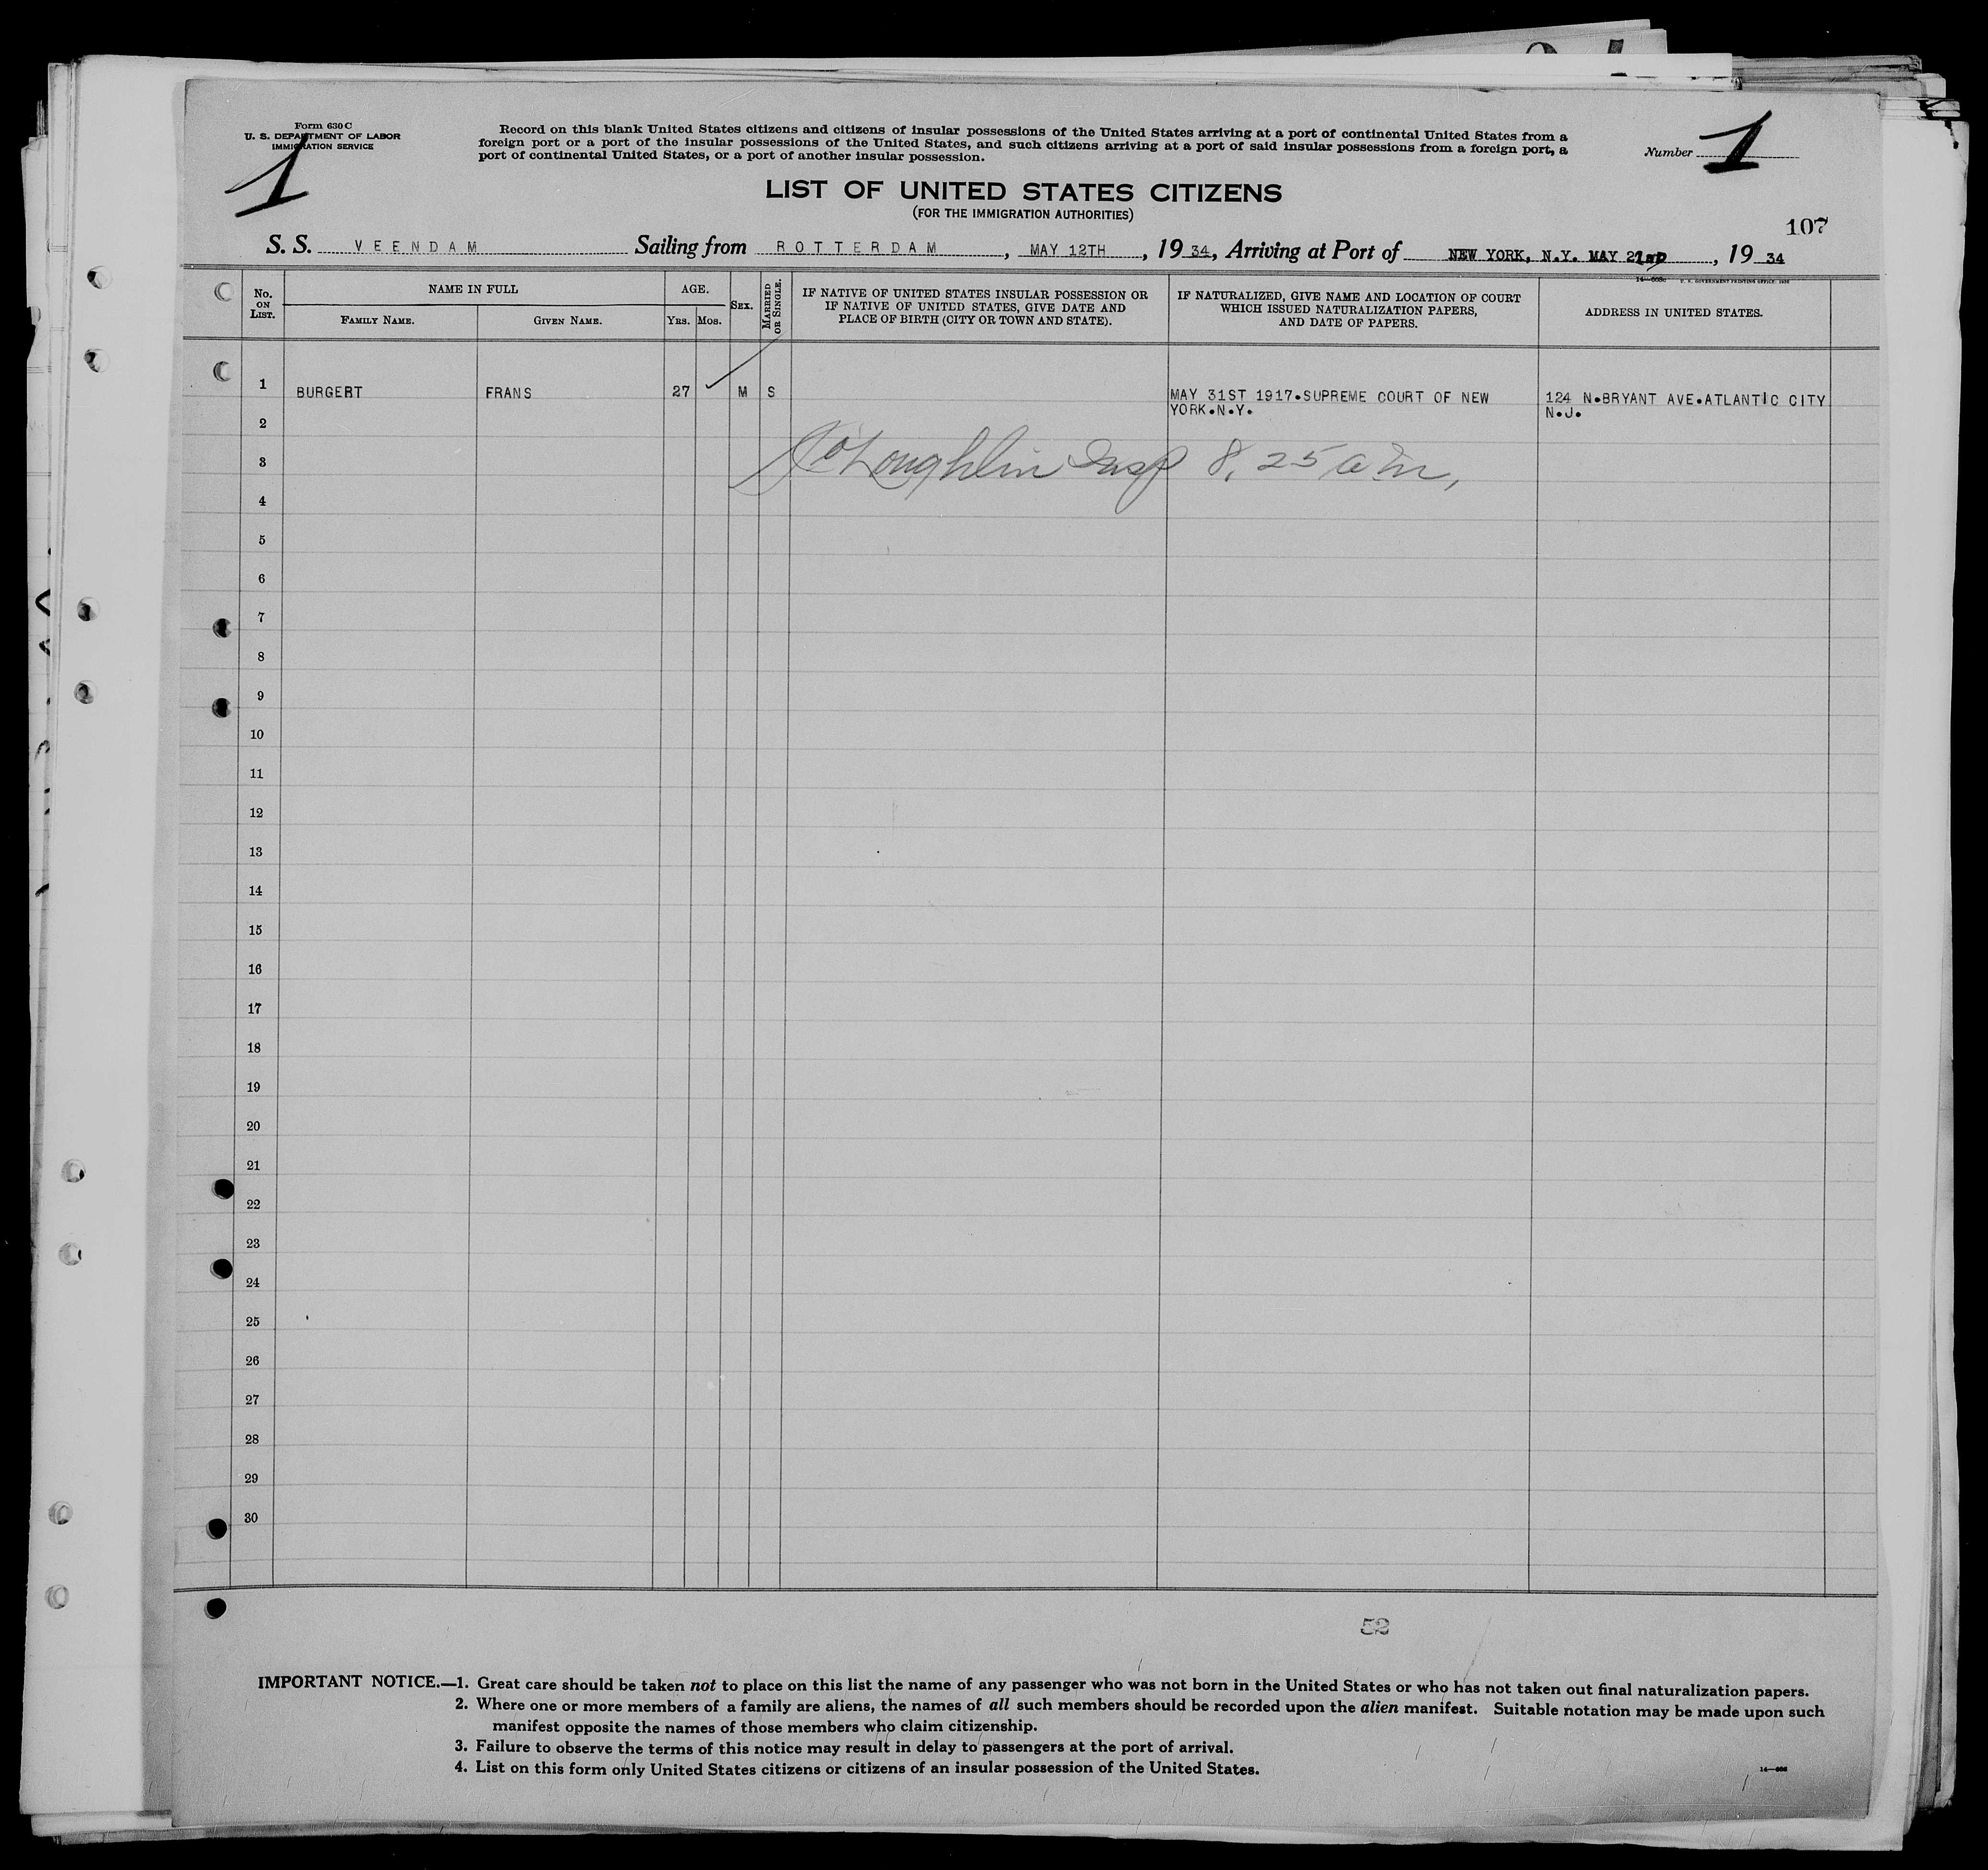 Form 630 C
U. S. DEPARTMENT OF LABOR
IMMIGRATION SERVICE
1
Record on this blank United States citizens and citizens of insular possessions of the United States arriving at a port of continental United States from a
foreign port or a port of the insular possessions of the United States, and such citizens arriving at a port of said insular possessions from a foreign port, a
port of continental United States, or a port of another insular possession.
Number 1
LIST OF UNITED STATES CITIZENS
(FOR THE IMMIGRATION AUTHORITIES)
107
S. S. VEENDAM Sailing from ROTTERDAM, MAY 12TH, 19 34, Arriving at Port of NEW YORK, N.Y. MAY, 19 34
U. S. GOVERNMENT PRINTING OFFICE
No. ON LIST.
NAME IN FULL
FAMILY NAME.
GIVEN NAME.
AGE.
YRS. MOS.
SEX.
MARRIED OR SINGLE.
IF NATIVE OF UNITED STATES INSULAR POSSESSION OR
IF NATIVE OF UNITED STATES, GIVE DATE AND
PLACE OF BIRTH (CITY OR TOWN AND STATE).
IF NATURALIZED, GIVE NAME AND LOCATION OF COURT
WHICH ISSUED NATURALIZATION PAPERS,
AND DATE OF PAPERS.
ADDRESS IN UNITED STATES.
1 BURGERT FRANS 27 M S MAY 31ST 1917.SUPREME COURT OF NEW 124 N.BRYANT AVE.ATLANTIC CITY
YORK.N.Y. N.J.
2
3 Insp 8,25 am,
4
5
6
7
8
9
10
11
12
13
14
15
16
17
18
19
20
21
22
23
24
25
26
27
28
29
30
52
IMPORTANT NOTICE.—1. Great care should be taken not to place on this list the name of any passenger who was not born in the United States or who has not taken out final naturalization papers.
2. Where one or more members of a family are aliens, the names of all such members should be recorded upon the alien manifest. Suitable notation may be made upon such
manifest opposite the names of those members who claim citizenship.
3. Failure to observe the terms of this notice may result in delay to passengers at the port of arrival.
4. List on this form only United States citizens or citizens of an insular possession of the United States.